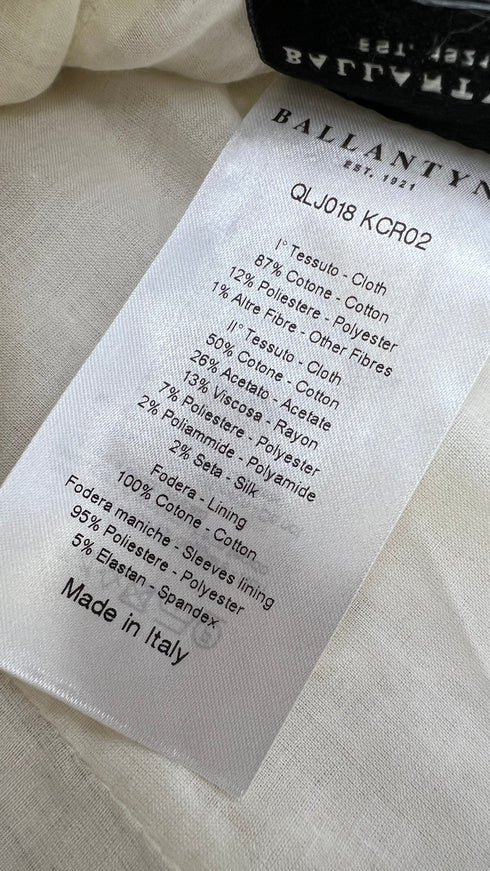 EST. 1921
BALLANT
BALLANTYN
EST. 1921
QLJ018 KCR02
I° Tessuto - Cloth
87% Cotone - Cotton
12% Poliestere - Polyester
1% Altre Fibre - Other Fibres
II° Tessuto - Cloth
50% Cotone - Cotton
26% Acetato - Acetate
13% Viscosa - Rayon
7% Poliestere - Polyester
2% Poliammide - Polyamide
2% Seta - Silk
Fodera - Lining
100% Cotone - Cotton
Fodera maniche - Sleeves lining
95% Poliestere - Polyester
5% Elastan - Spandex
Made in Italy